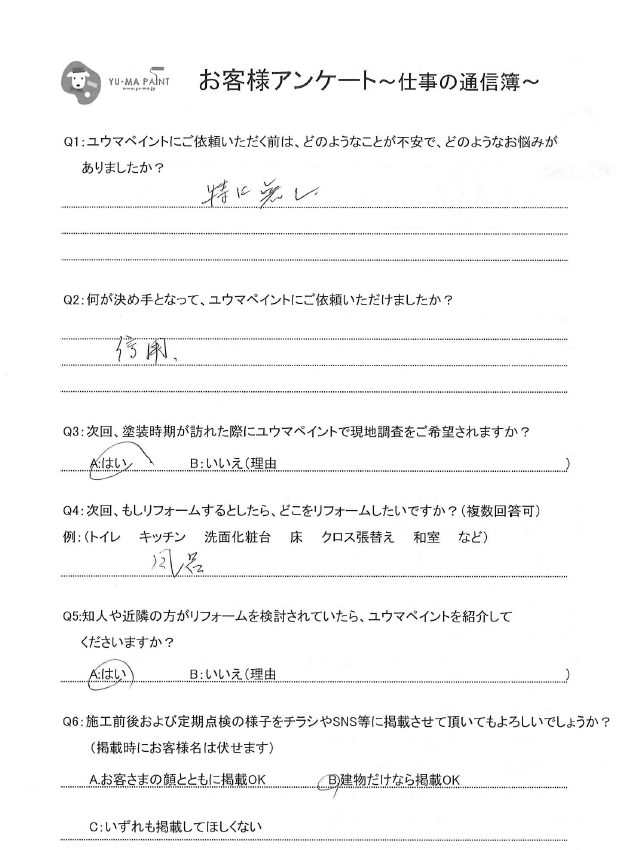 YU-MA PAINT
www.yu-ma.jp
お客様アンケート～仕事の通信簿～
Q1:ユウマペイントにご依頼いただく前は、どのようなことが不安で、どのようなお悩みが
ありましたか？
特に無し
Q2:何が決め手となって、ユウマペイントにご依頼いただけましたか？
信用、
Q3:次回、塗装時期が訪れた際にユウマペイントで現地調査をご希望されますか？
A:はい B:いいえ(理由 )
Q4:次回、もしリフォームするとしたら、どこをリフォームしたいですか？(複数回答可)
例:(トイレ キッチン 洗面化粧台 床 クロス張替え 和室 など)
風呂
Q5:知人や近隣の方がリフォームを検討されていたら、ユウマペイントを紹介して
くださいますか？
A:はい B:いいえ(理由 )
Q6:施工前後および定期点検の様子をチラシやSNS等に掲載させて頂いてもよろしいでしょうか？
(掲載時にお客様名は伏せます)
A.お客さまの顔とともに掲載OK B)建物だけなら掲載OK
C:いずれも掲載してほしくない